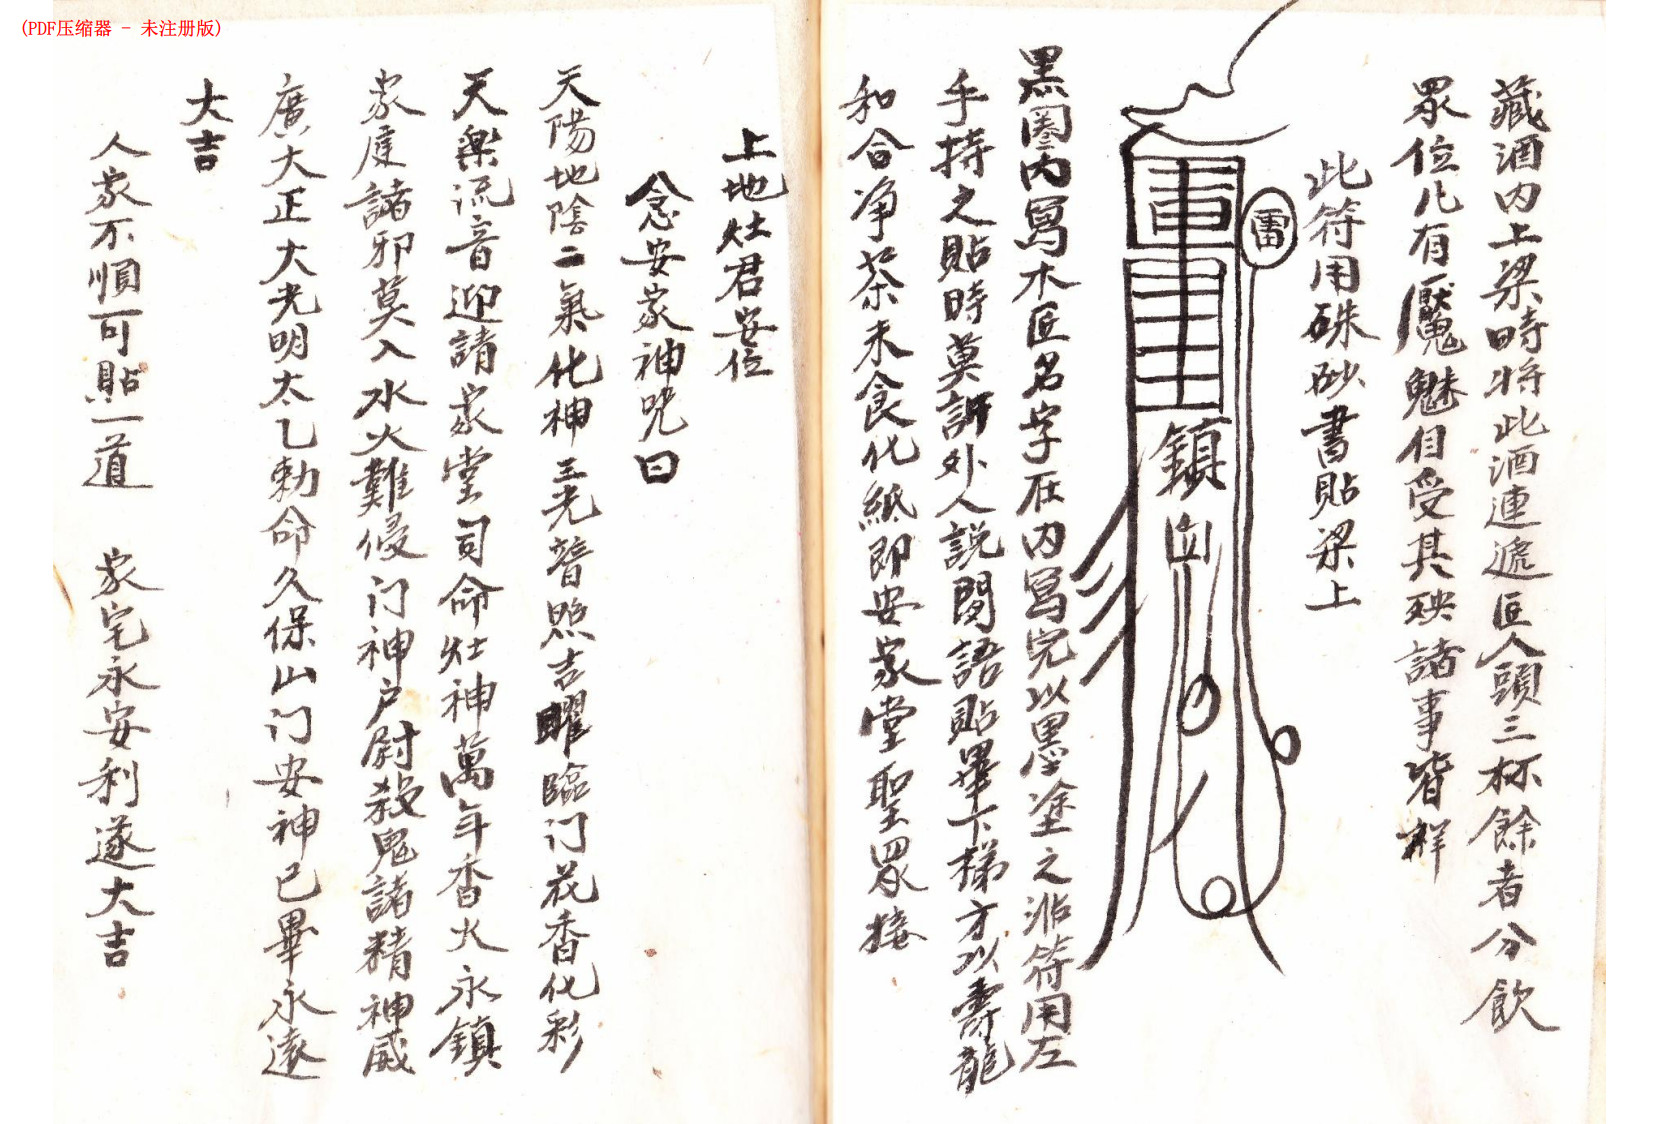 (PDF压缩器 - 未注册版)
藏酒内上梁時将此酒連遞匠人頭三杯餘者分飲
眾位凡有魘魅自受其殃諸事皆祥
此符用硃砂書貼梁上
雷
鎮
黑圈内寫木匠名字在内寫完以墨塗之沾符用左
手持之貼時莫許外人説閑語貼畢下梯方以壽龍
和合净茶未食化紙即安家堂聖眾接
上地灶君安位
念安家神咒曰
天陽地陰二氣化神三光普照吉曜臨门花香化彩
天樂流音迎請家堂司命灶神萬年香火永鎮
家庭諸邪莫入水火難侵门神户尉殺鬼諸精神威
廣大正大光明太乙勅命久保山门安神已畢永遠
大吉
人家不順可貼一道 家宅永安利遂大吉